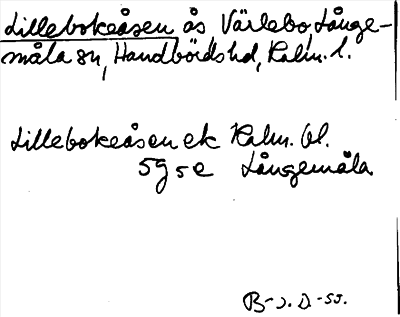 Lillebokeåsen ås Värlebo, Långe-
måla sn, Handbörds hd, Kalm. l.
Lillebokeåsen ek Kalm. bl.
5g se Långemåla
B-J. D-SJ.